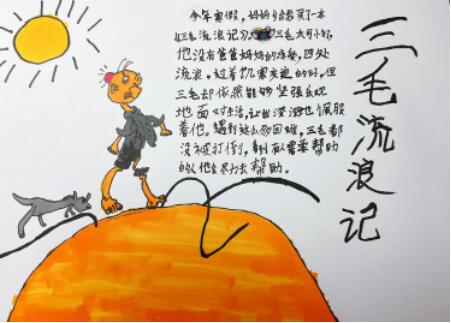 三毛流浪记
今年寒假，妈妈给我买了一本
《三毛流浪记》，三毛太可怜了，
他没有爸爸妈妈的疼爱，四处
流浪，过着饥寒交迫的日子，但
三毛却依然能够坚强乐观
地面对生活，让我深深地佩服
着他，遇到这么多困难，三毛都
没被打倒，看到有人需要帮助
的人他会尽力去帮助。